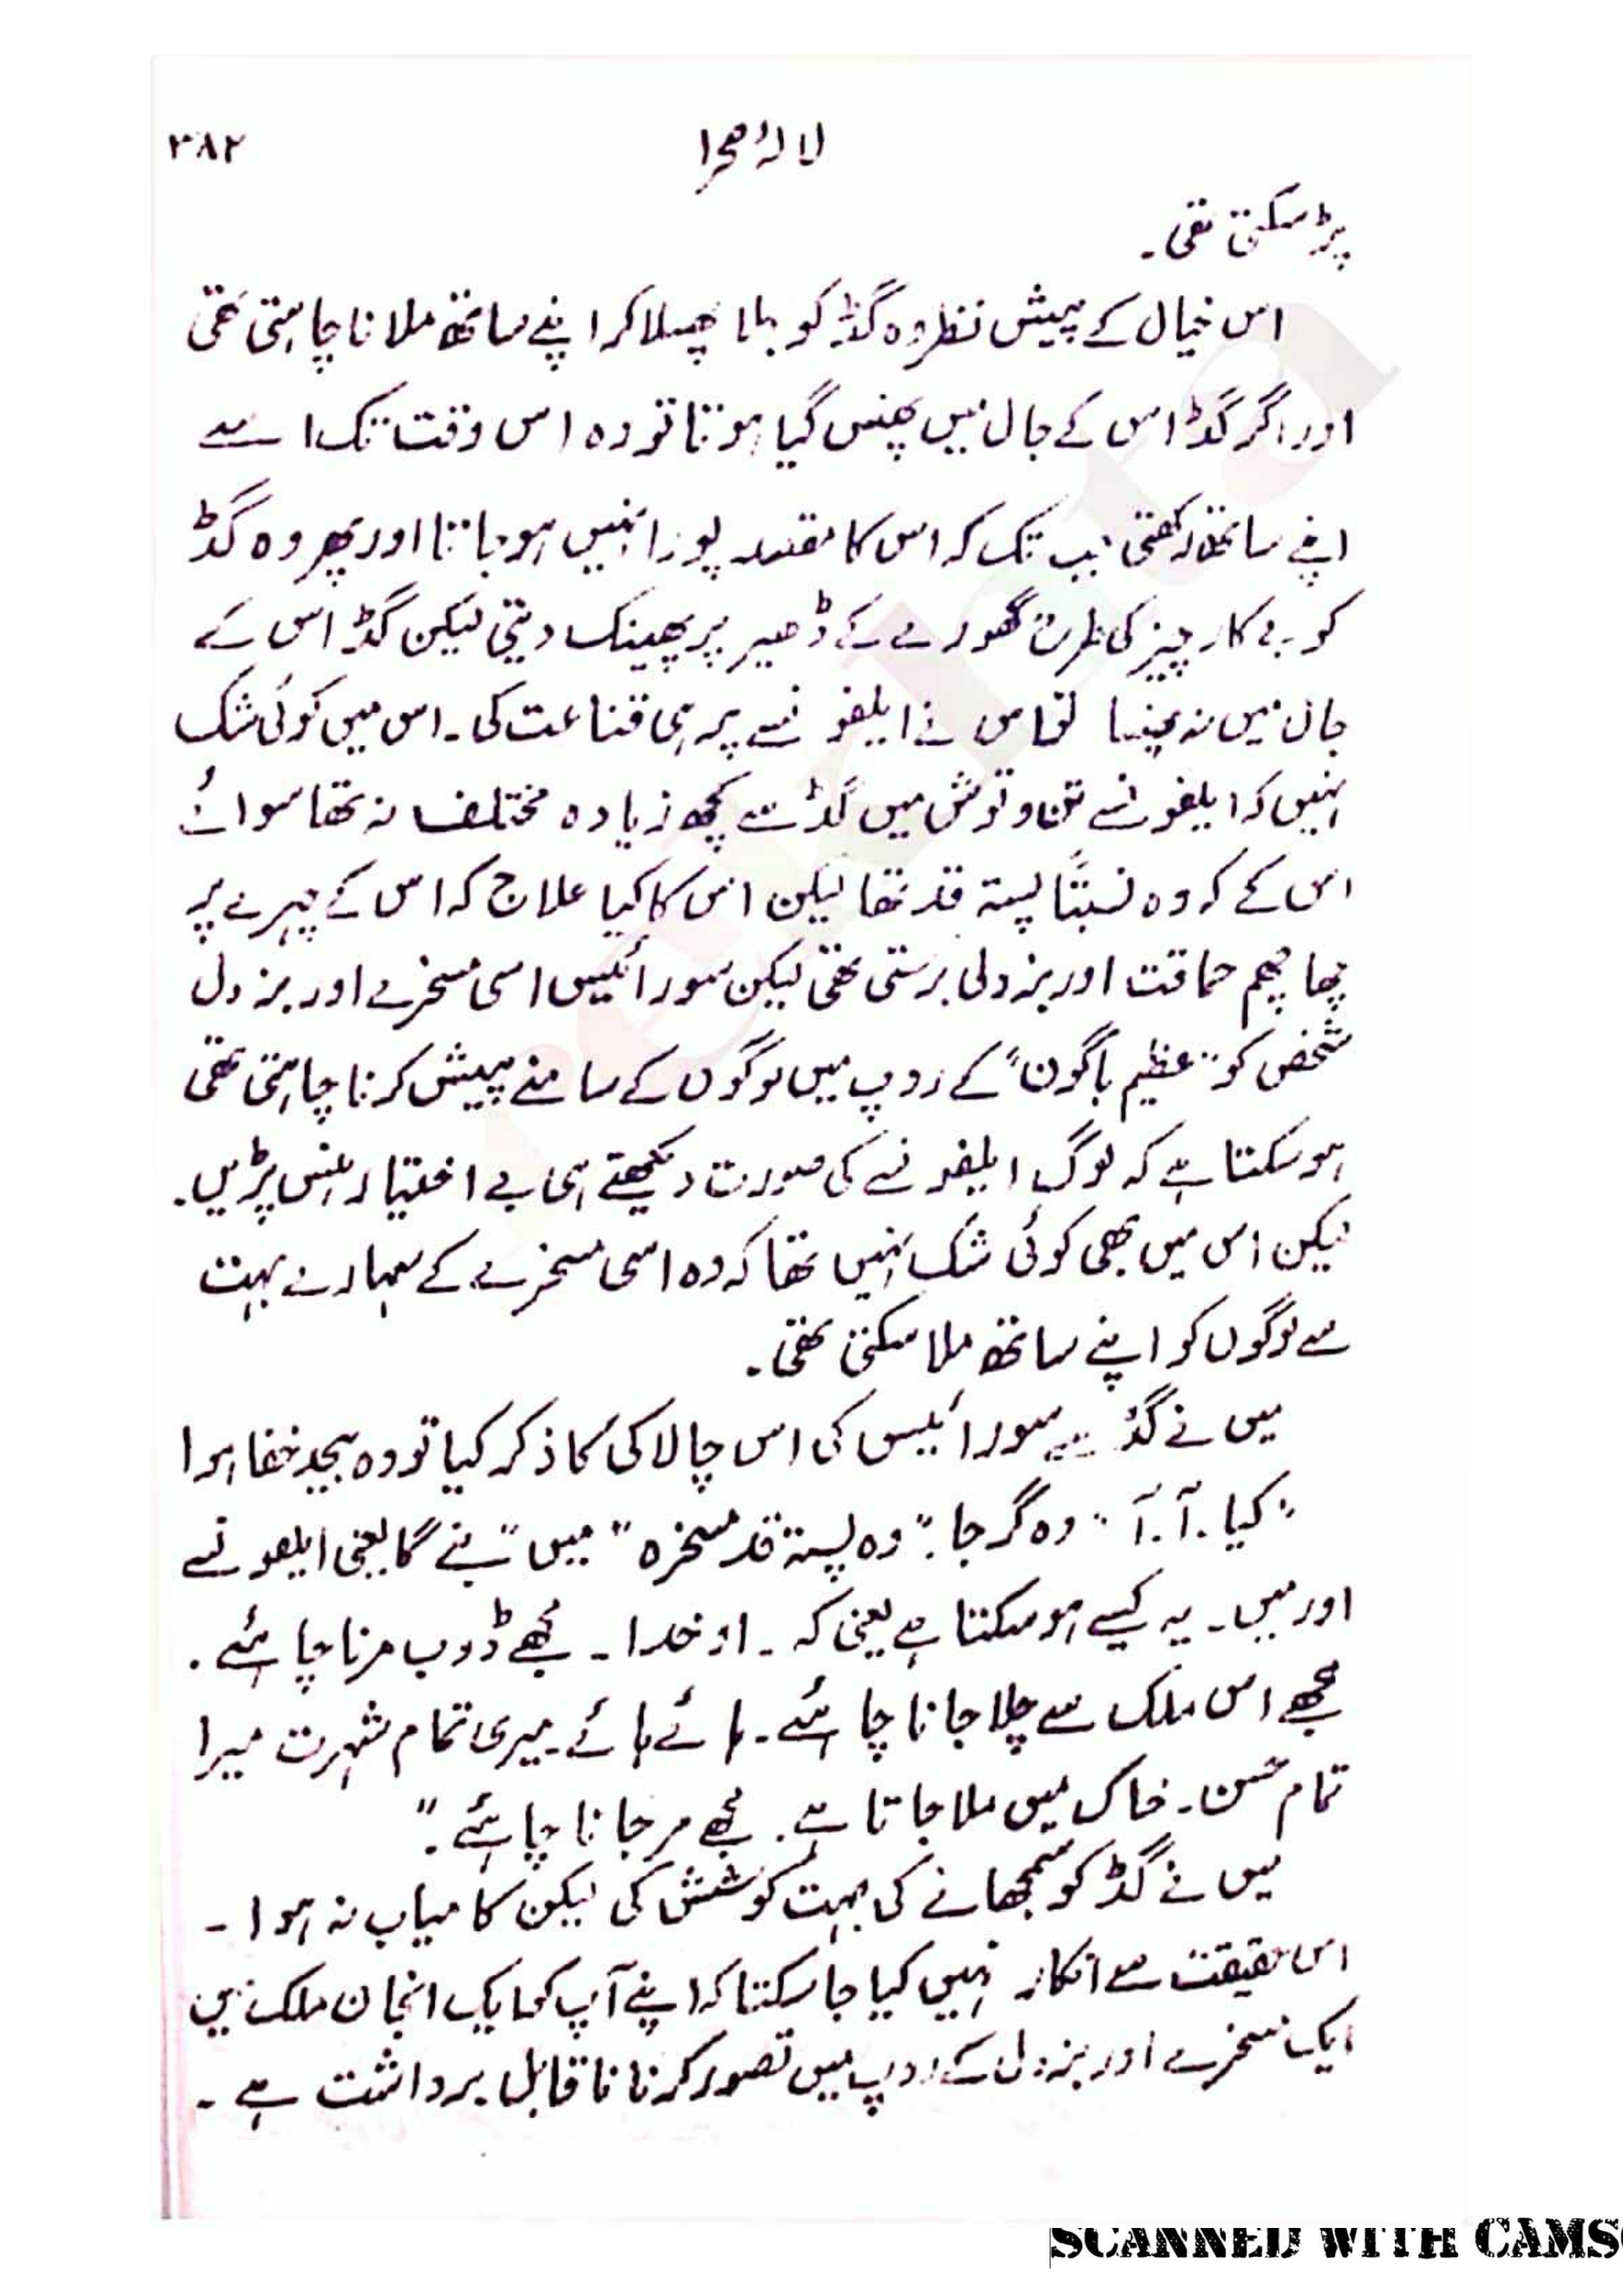 لالۂ صحرا ۳۸۲
پڑ سکتی تھی۔
اس خیال کے پیش نظر وہ گڈ کو بہلا پھسلا کر اپنے ساتھ ملانا چاہتی تھی
اور اگر گڈ اس کے جال میں پھنس گیا ہوتا تو وہ اس وقت تک اسے
اپنے ساتھ رکھتی جب تک کہ اس کا مقصد پورا نہیں ہو جاتا اور پھر وہ گڈ
کو بے کار چیز کی طرح گھورے کے ڈھیر پر پھینک دیتی لیکن گڈ اس کے
جال میں نہ پھنسا تو اس نے ایلفونسے پر ہی قناعت کی۔ اس میں کوئی شک
نہیں کہ ایلفونسے تن و توش میں گڈ سے کچھ زیادہ مختلف نہ تھا سوائے
اس کے کہ وہ نسبتاً پستہ قد تھا لیکن اس کا کیا علاج کہ اس کے چہرے پر
چھا چھم حماقت اور بزدلی برستی تھی لیکن سورائیس اسی مسخرے اور بزدل
شخص کو "عظیم باگون" کے روپ میں لوگوں کے سامنے پیش کرنا چاہتی تھی
ہو سکتا ہے کہ لوگ ایلفونسے کی صورت دیکھتے ہی بے اختیار ہنس پڑیں۔
لیکن اس میں بھی کوئی شک نہیں تھا کہ وہ اسی مسخرے کے سہارے بہت
سے لوگوں کو اپنے ساتھ ملا سکتی تھی۔
میں نے گڈ سے سورائیس کی اس چالاکی کا ذکر کیا تو وہ بیحد خفا ہوا
"کیا۔ آ۔ آ" وہ گرجا۔ "وہ پستہ قد مسخرہ "میں" بنے گا یعنی ایلفونسے
اور میں۔ یہ کیسے ہو سکتا ہے یعنی کہ۔ او خدا۔ مجھے ڈوب مرنا چاہئے۔
مجھے اس ملک سے چلا جانا چاہئے۔ ہائے ہائے۔ میری تمام شہرت میرا
تمام حسن۔ خاک میں ملا جاتا ہے۔ مجھے مر جانا چاہئے۔"
میں نے گڈ کو سمجھانے کی بہت کوشش کی لیکن کامیاب نہ ہوا۔
اس حقیقت سے انکار نہیں کیا جا سکتا کہ اپنے آپ کو ایک انجان ملک میں
ایک مسخرے اور بزدل کے روپ میں تصور کرنا ناقابل برداشت ہے۔
SCANNED WITH CAMS